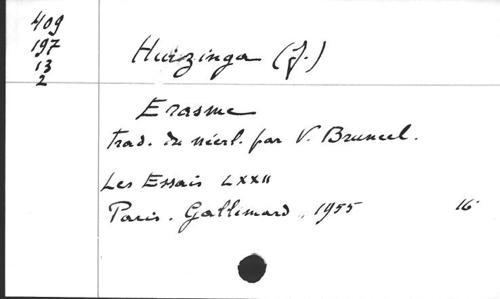 409
197
13
2
Huizinga (J.)
Erasme
Trad. du néerl. par V. Bruncel.
Les Essais LXXII
Paris. Gallimard, 1955 16